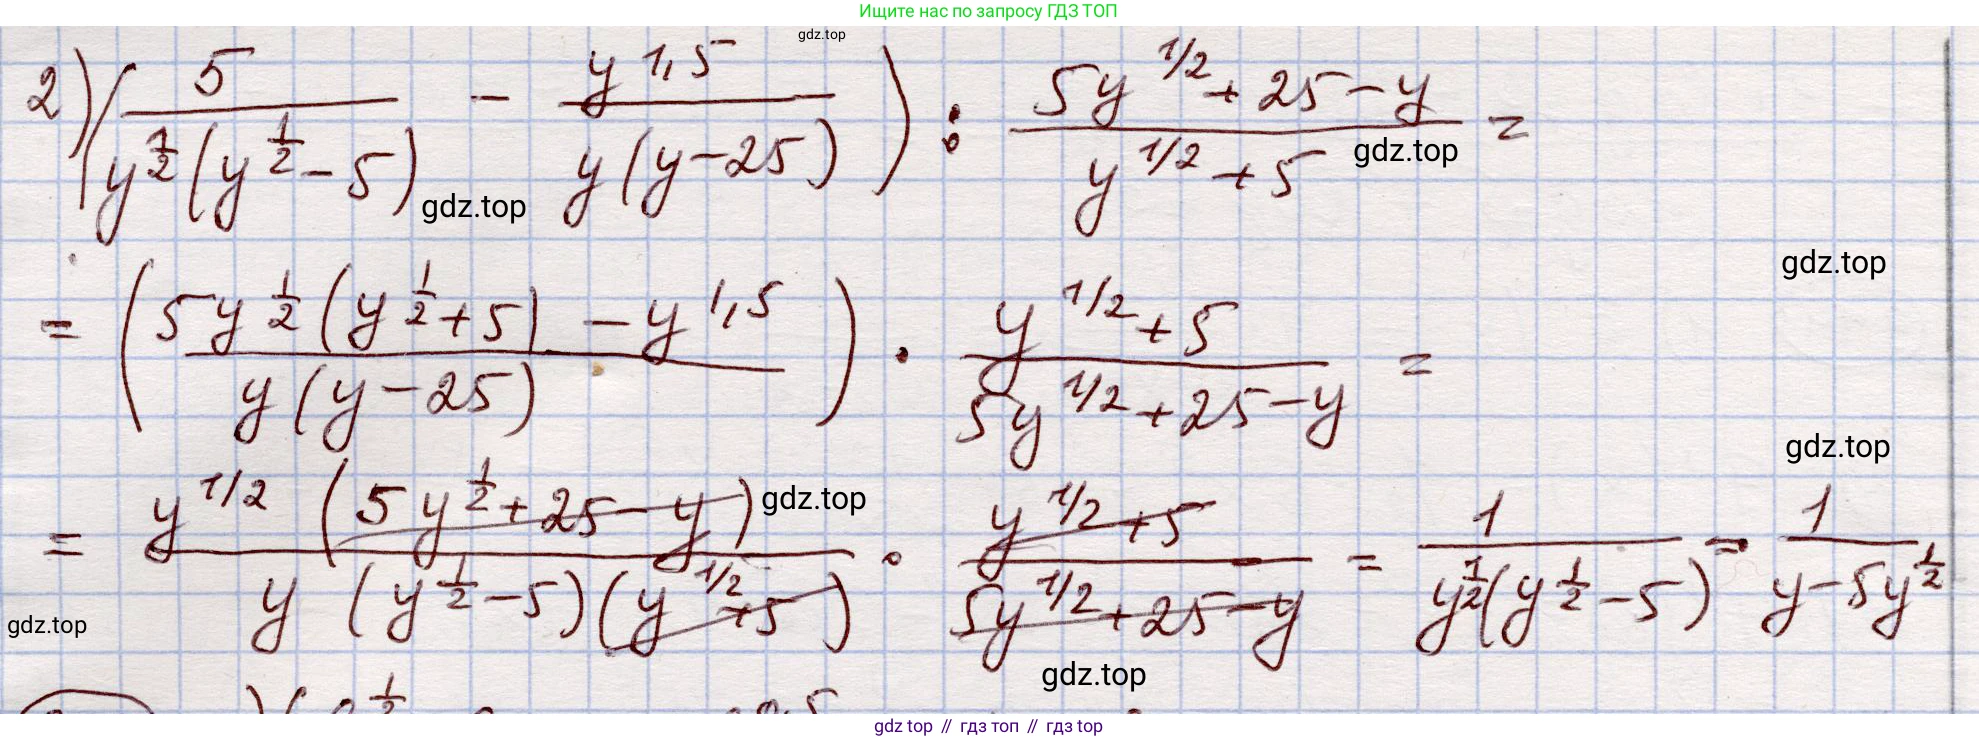 Ищите нас по запросу ГДЗ ТОП
gdz.top
2) (5/(y^(1/2)(y^(1/2) - 5)) - y^(1,5)/(y(y - 25))) : (5y^(1/2) + 25 - y)/(y^(1/2) + 5) =
gdz.top
gdz.top
gdz.top
= ((5y^(1/2)(y^(1/2) + 5) - y^(1,5))/(y(y - 25))) · (y^(1/2) + 5)/(5y^(1/2) + 25 - y) =
gdz.top
gdz.top
= (y^(1/2)(5y^(1/2) + 25 - y))/(y(y^(1/2) - 5)(y^(1/2) + 5)) · (y^(1/2) + 5)/(5y^(1/2) + 25 - y) = 1/(y^(1/2)(y^(1/2) - 5)) = 1/(y - 5y^(1/2))
gdz.top
gdz.top
gdz top // гдз топ // gdz top